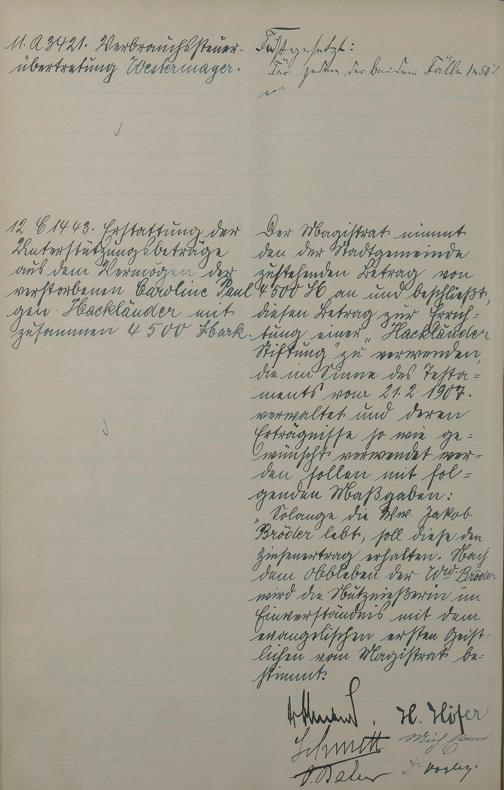 11. A 3421. Verbrauchssteuer-
übertretung Westermayer.
Festgesetzt:
Für jeden der beiden Fälle 1 M 50
12. C 1443. Erstattung der
Unterstützungsbeträge
aus dem Vermögen der
verstorbenen Caroline Paul
geb. Hackländer mit
zusammen 4500 Mark.
Der Magistrat nimmt
den der Stadtgemeinde
zustehenden Betrag von
4500 M an und beschließt,
diesen Betrag zur Errich=
tung einer „Hackländer
Stiftung" zu verwenden,
die im Sinne des Testa=
ments vom 21.2.1907.
verwaltet und deren
Erträgnisse so wie ge=
wünscht verwendet wer=
den sollen mit fol=
genden Maßgaben:
"Solange die Ww. Jakob
Bröder lebt, soll diese den
Zinsenertrag erhalten. Nach
dem Ableben der Wwe. Bröder
wird die Nutznießerin im
Einverständnis mit dem
evangelischen ersten Geist=
lichen vom Magistrat be=
stimmt.
H. Höfer
Schmitt